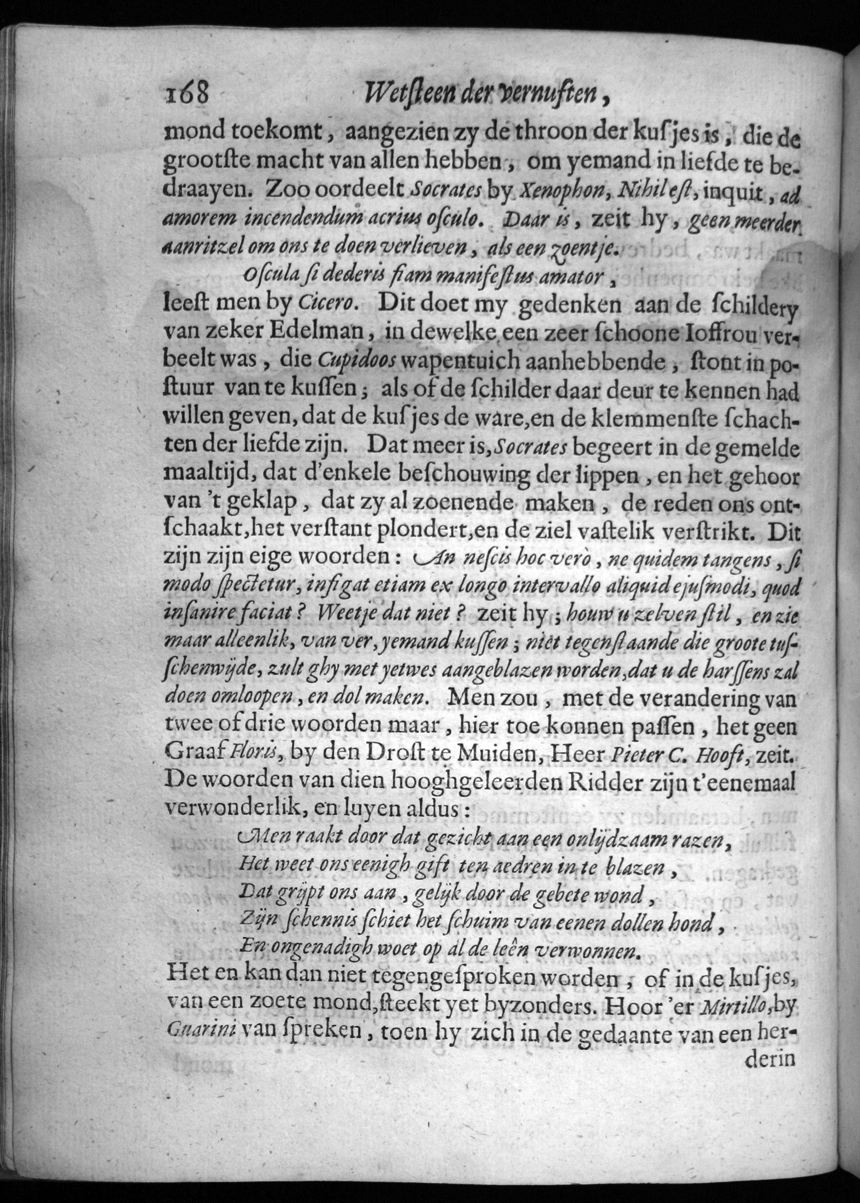 168 Wetſteen der vernuften,
mond toekomt, aangezien zy de throon der kuſjes is, die de
grootſte macht van allen hebben, om yemand in liefde te be-
draayen. Zoo oordeelt Socrates by Xenophon, Nihil eſt, inquit, ad
amorem incendendum acrius oſculo. Daar is, zeit hy, geen meerder
aanritzel om ons te doen verlieven, als een zoentje.
Oſcula ſi dederis fiam manifeſtus amator,
leeſt men by Cicero. Dit doet my gedenken aan de ſchildery
van zeker Edelman, in dewelke een zeer ſchoone Ioffrou ver-
beelt was, die Cupidoos wapentuich aanhebbende, ſtont in po-
ſtuur van te kuſſen; als of de ſchilder daar deur te kennen had
willen geven, dat de kuſjes de ware,en de klemmenſte ſchach-
ten der liefde zijn. Dat meer is, Socrates begeert in de gemelde
maaltijd, dat d'enkele beſchouwing der lippen, en het gehoor
van 't geklap, dat zy al zoenende maken, de reden ons ont-
ſchaakt,het verſtant plondert,en de ziel vaſtelik verſtrikt. Dit
zijn zijn eige woorden: An neſcis hoc verò, ne quidem tangens, ſi
modo ſpectetur, infigat etiam ex longo intervallo aliquid ejuſmodi, quod
inſanire faciat? Weetje dat niet? zeit hy; houw u zelven ſtil, en zie
maar alleenlik, van ver, yemand kuſſen; niet tegenſtaande die groote tuſ-
ſchenwijde, zult ghy met yetwes aangeblazen worden,dat u de harſſens zal
doen omloopen, en dol maken. Men zou, met de verandering van
twee of drie woorden maar, hier toe konnen paſſen, het geen
Graaf Floris, by den Droſt te Muiden, Heer Pieter C. Hooft, zeit.
De woorden van dien hooghgeleerden Ridder zijn t'eenemaal
verwonderlik, en luyen aldus:
Men raakt door dat gezicht aan een onlijdzaam razen,
Het weet ons eenigh gift ten aedren in te blazen,
Dat grijpt ons aan, gelijk door de gebete wond,
Zijn ſchennis ſchiet het ſchuim van eenen dollen hond,
En ongenadigh woet op al de leên verwonnen.
Het en kan dan niet tegengeſproken worden, of in de kuſjes,
van een zoete mond,ſteekt yet byzonders. Hoor 'er Mirtillo,by
Guarini van ſpreken, toen hy zich in de gedaante van een her-
derin